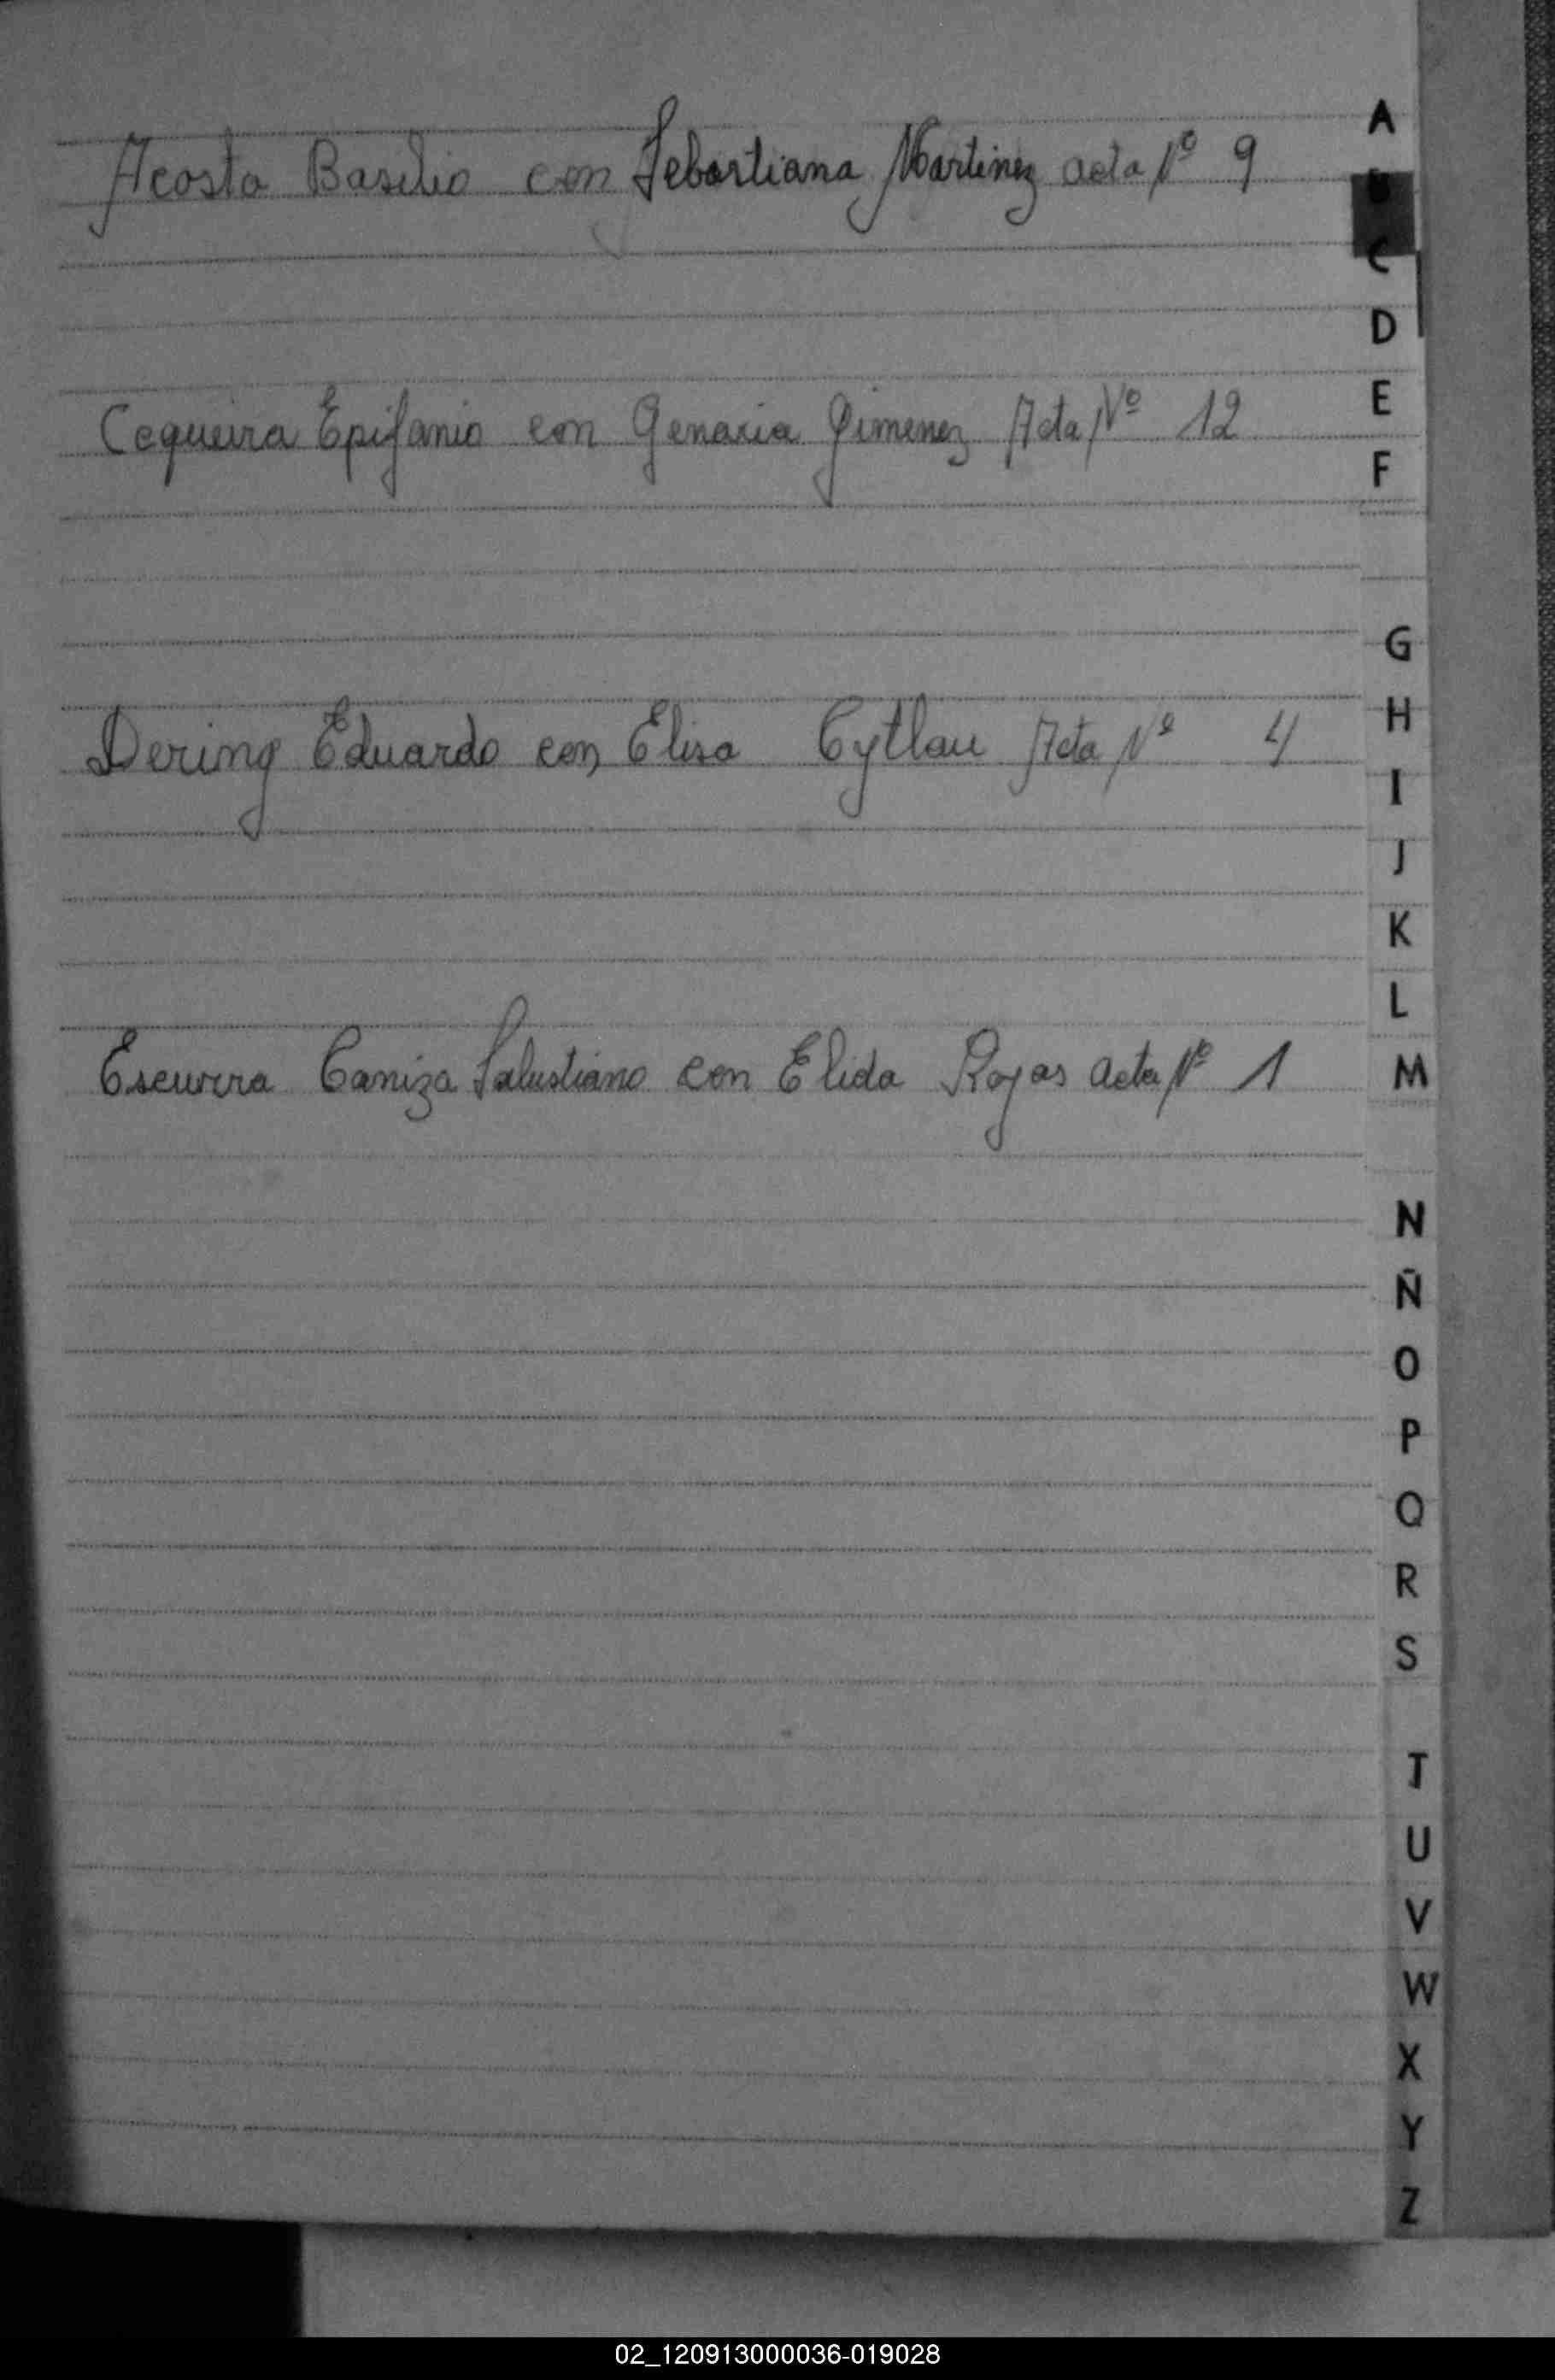 Acosta Basilio con Sebastiana Martinez acta Nº 9
Cequeira Epifanio con Genaria Gimenez Acta Nº 12
Dering Eduardo con Elisa Cytlau Acta Nº 4
Escurra Caniza Salustiano con Elida Rojas acta Nº 1
A
B
C
D
E
F
G
H
I
J
K
L
M
N
Ñ
O
P
Q
R
S
T
U
V
W
X
Y
Z
02_120913000036-019028